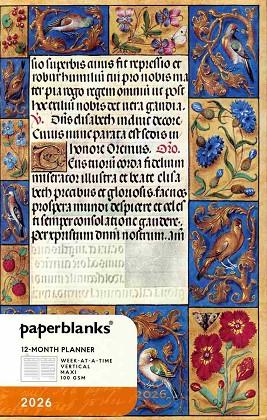 sio superbis fit repressio et
robur humilium pro nobis ma
ter pia rogo regem omniu ut post
exiliu nobis det vera gaudia.
V. elisabeth decore.
Cuius nunc parata est sedis in
honore Oremus. Oro.
corda fidelium
miserator illustra et beate elisa
beth precibus et gloriosis. facnos
prospera mundi despicere et celes
ti semper consolatione gaudere.
Per xpistum dnm nostrum. Am
paperblanks®
12-MONTH PLANNER
WEEK-AT-A-TIME
VERTICAL
MAXI
100 GSM
2026
2026